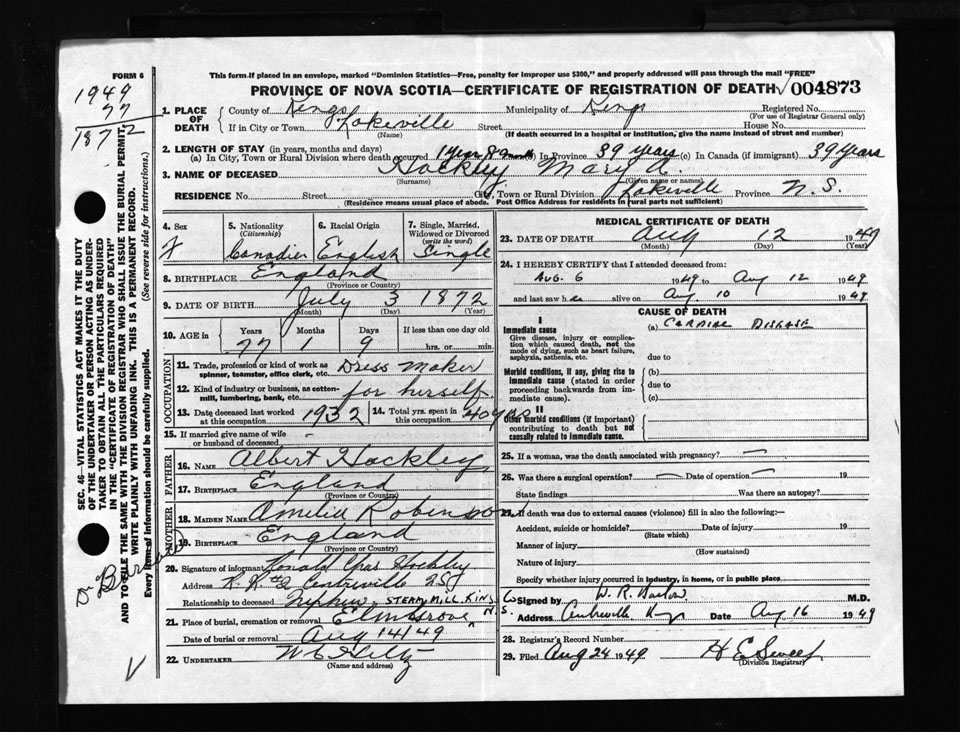 FORM 6
This form if placed in an envelope, marked "Dominion Statistics—Free, penalty for improper use $300," and properly addressed will pass through the mail "FREE"
PROVINCE OF NOVA SCOTIA—CERTIFICATE OF REGISTRATION OF DEATH √ 004873
1949
77
1872
1. PLACE OF DEATH
County of Kings Municipality of Kings Registered No.
(For use of Registrar General only)
If in City or Town Lakeville Street House No.
(Name) (If death occurred in a hospital or institution, give the name instead of street and number)
2. LENGTH OF STAY (in years, months and days)
(a) In City, Town or Rural Division where death occurred 1 year 8 (b) In Province 39 years (c) In Canada (if immigrant) 39 years
3. NAME OF DECEASED Hockley Mary A.
(Surname) (Given name or names)
RESIDENCE No. Street City, Town or Rural Division Lakeville Province N.S.
(Residence means usual place of abode. Post Office Address for residents in rural parts not sufficient)
4. Sex 5. Nationality (Citizenship) 6. Racial Origin 7. Single, Married, Widowed or Divorced (write the word)
F Canadian English Single
8. BIRTHPLACE England
(Province or Country)
9. DATE OF BIRTH July 3 1872
(Month) (Day) (Year)
10. AGE in Years Months Days If less than one day old
77 1 9 hrs. or min.
OCCUPATION
11. Trade, profession or kind of work as spinner, teamster, office clerk, etc. Dress Maker
12. Kind of industry or business, as cotton-mill, lumbering, bank, etc. for herself
13. Date deceased last worked at this occupation 1932 14. Total yrs. spent in this occupation 40 yrs
15. If married give name of wife or husband of deceased
FATHER
16. NAME Albert Hockley
17. BIRTHPLACE England
(Province or Country)
MOTHER
18. MAIDEN NAME Amelia Robinson
19. BIRTHPLACE England
(Province or Country)
20. Signature of informant Ronald Chas Hockley
Address R.R #2 Centreville N.S.
Relationship to deceased Nephew STEAM MILL KINGS
21. Place of burial, cremation or removal Elm Grove N.S.
Date of burial or removal Aug 14/49
22. UNDERTAKER W C Hiltz
(Name and address)
MEDICAL CERTIFICATE OF DEATH
23. DATE OF DEATH Aug 12 1949
(Month) (Day) (Year)
24. I HEREBY CERTIFY that I attended deceased from:
Aug. 6 1949 to Aug 12 1949
and last saw h er alive on Aug. 10 1949
CAUSE OF DEATH
I
Immediate cause (a) CARDIAC DISEASE
Give disease, injury or complication which caused death, not the mode of dying, such as heart failure, asphyxia, asthenia, etc. due to
Morbid conditions, if any, giving rise to immediate cause (stated in order proceeding backwards from immediate cause). (b)
due to
(c)
II
Other morbid conditions (if important) contributing to death but not causally related to immediate cause.
25. If a woman, was the death associated with pregnancy? —
26. Was there a surgical operation? — Date of operation — 19
State findings Was there an autopsy?
27. If death due to external causes (violence) fill in also the following:—
Accident, suicide or homicide? Date of injury 19
(State which)
Manner of injury
(How sustained)
Nature of injury
Specify whether injury occurred in industry, in home, or in public place
Signed by M.D.
Address Centreville Kings Date Aug 16 1949
28. Registrar's Record Number
29. Filed Aug 24 1949 H E Sweet
(Division Registrar)
SEC. 46—VITAL STATISTICS ACT MAKES IT THE DUTY
OF THE UNDERTAKER OR PERSON ACTING AS UNDER-
TAKER TO OBTAIN ALL THE PARTICULARS REQUIRED
IN THE "CERTIFICATE OF REGISTRATION OF DEATH"
AND TO FILE THE SAME WITH THE DIVISION REGISTRAR WHO SHALL ISSUE THE BURIAL PERMIT.
WRITE PLAINLY WITH UNFADING INK. THIS IS A PERMANENT RECORD.
Every item of information should be carefully supplied. (See reverse side for instructions.)